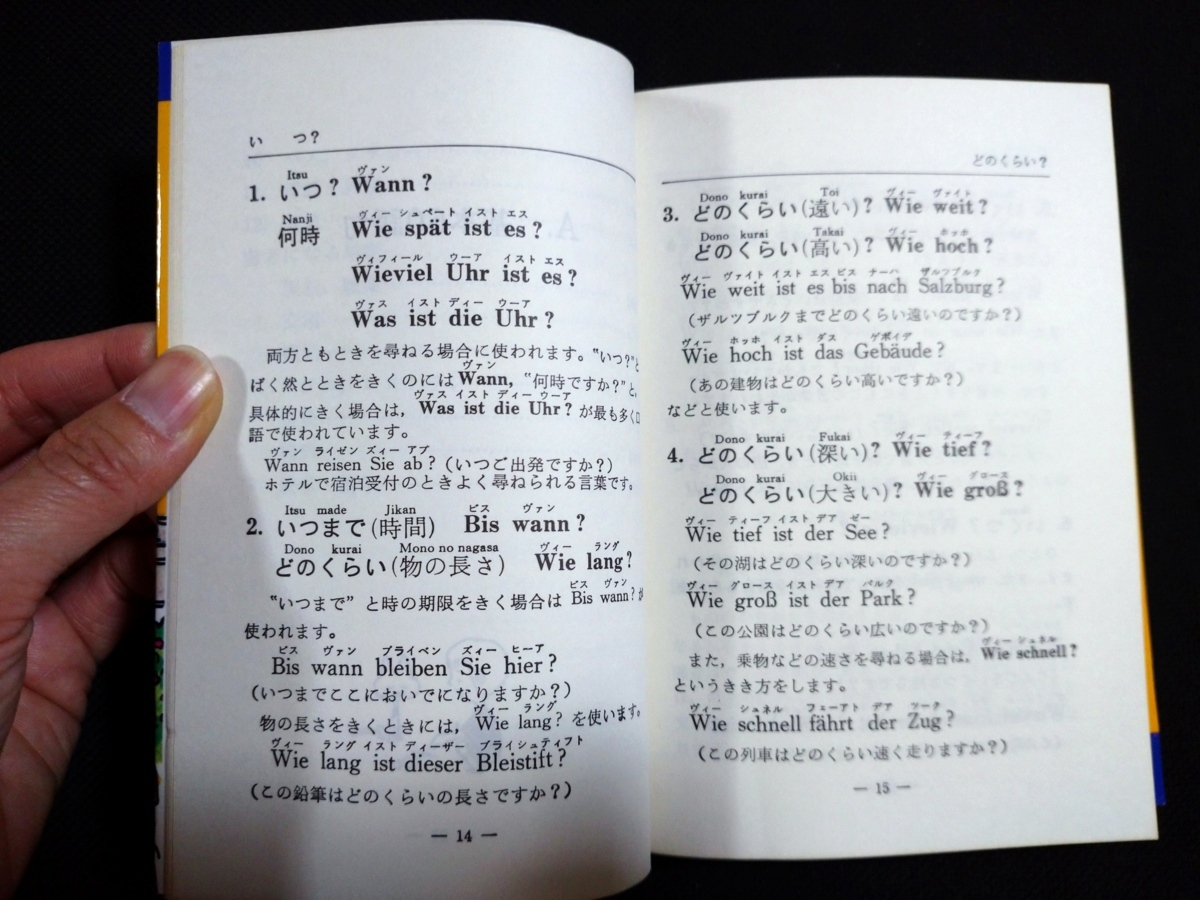 い つ?
Itsu ヴァン
1. いつ? Wann?
Nanji ヴィー シュペート イスト エス
何時 Wie spät ist es?
ヴィフィール ウーア イスト エス
Wieviel Uhr ist es?
ヴァス イスト ディー ウーア
Was ist die Uhr?
両方ともときを尋ねる場合に使われます。“いつ?”と
ヴァン
ばく然とときをきくのには Wann, “何時ですか?”と,
ヴァス イスト ディー ウーア
具体的にきく場合は, Was ist die Uhr? が最も多く口
語で使われています。
ヴァン ライゼン ズィー アブ
Wann reisen Sie ab? (いつご出発ですか?)
ホテルで宿泊受付のときよく尋ねられる言葉です。
Itsu made Jikan ビス ヴァン
2. いつまで(時間) Bis wann?
Dono kurai Mono no nagasa ヴィー ラング
どのくらい(物の長さ) Wie lang?
ビス ヴァン
“いつまで” と時の期限をきく場合は Bis wann? が
使われます。
ビス ヴァン ブライベン ズィー ヒーア
Bis wann bleiben Sie hier?
(いつまでここにおいでになりますか?)
ヴィー ラング
物の長さをきくときには, Wie lang? を使います。
ヴィー ラング イスト ディーザー ブライシュティフト
Wie lang ist dieser Bleistift?
(この鉛筆はどのくらいの長さですか?)
— 14 —
どのくらい?
Dono kurai Toi ヴィー ヴァイト
3. どのくらい(遠い)? Wie weit?
Dono kurai Takai ヴィー ホッホ
どのくらい(高い)? Wie hoch?
ヴィー ヴァイト イスト エス ビス ナーハ ザルツブルク
Wie weit ist es bis nach Salzburg?
(ザルツブルクまでどのくらい遠いのですか?)
ヴィー ホッホ イスト ダス ゲボイデ
Wie hoch ist das Gebäude?
(あの建物はどのくらい高いですか?)
などと使います。
Dono kurai Fukai ヴィー ティーフ
4. どのくらい(深い)? Wie tief?
Dono kurai Okii ヴィー グロース
どのくらい(大きい)? Wie groß?
ヴィー ティーフ イスト デア ゼー
Wie tief ist der See?
(その湖はどのくらい深いのですか?)
ヴィー グロース イスト デア パルク
Wie groß ist der Park?
(この公園はどのくらい広いのですか?)
ヴィー シュネル
また, 乗物などの速さを尋ねる場合は, Wie schnell?
というきき方をします。
ヴィー シュネル フェーアト デア ツーク
Wie schnell fährt der Zug?
(この列車はどのくらい速く走りますか?)
— 15 —